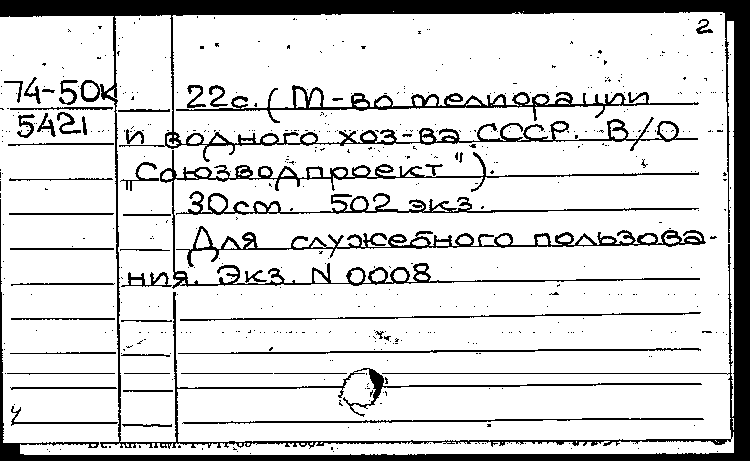 2
74-50к
5421
22с. (М-во мелиорации
и водного хоз-ва СССР. В/О
"Союзводпроект").
30см. 502 экз.
Для служебного пользова-
ния. Экз. N 0008